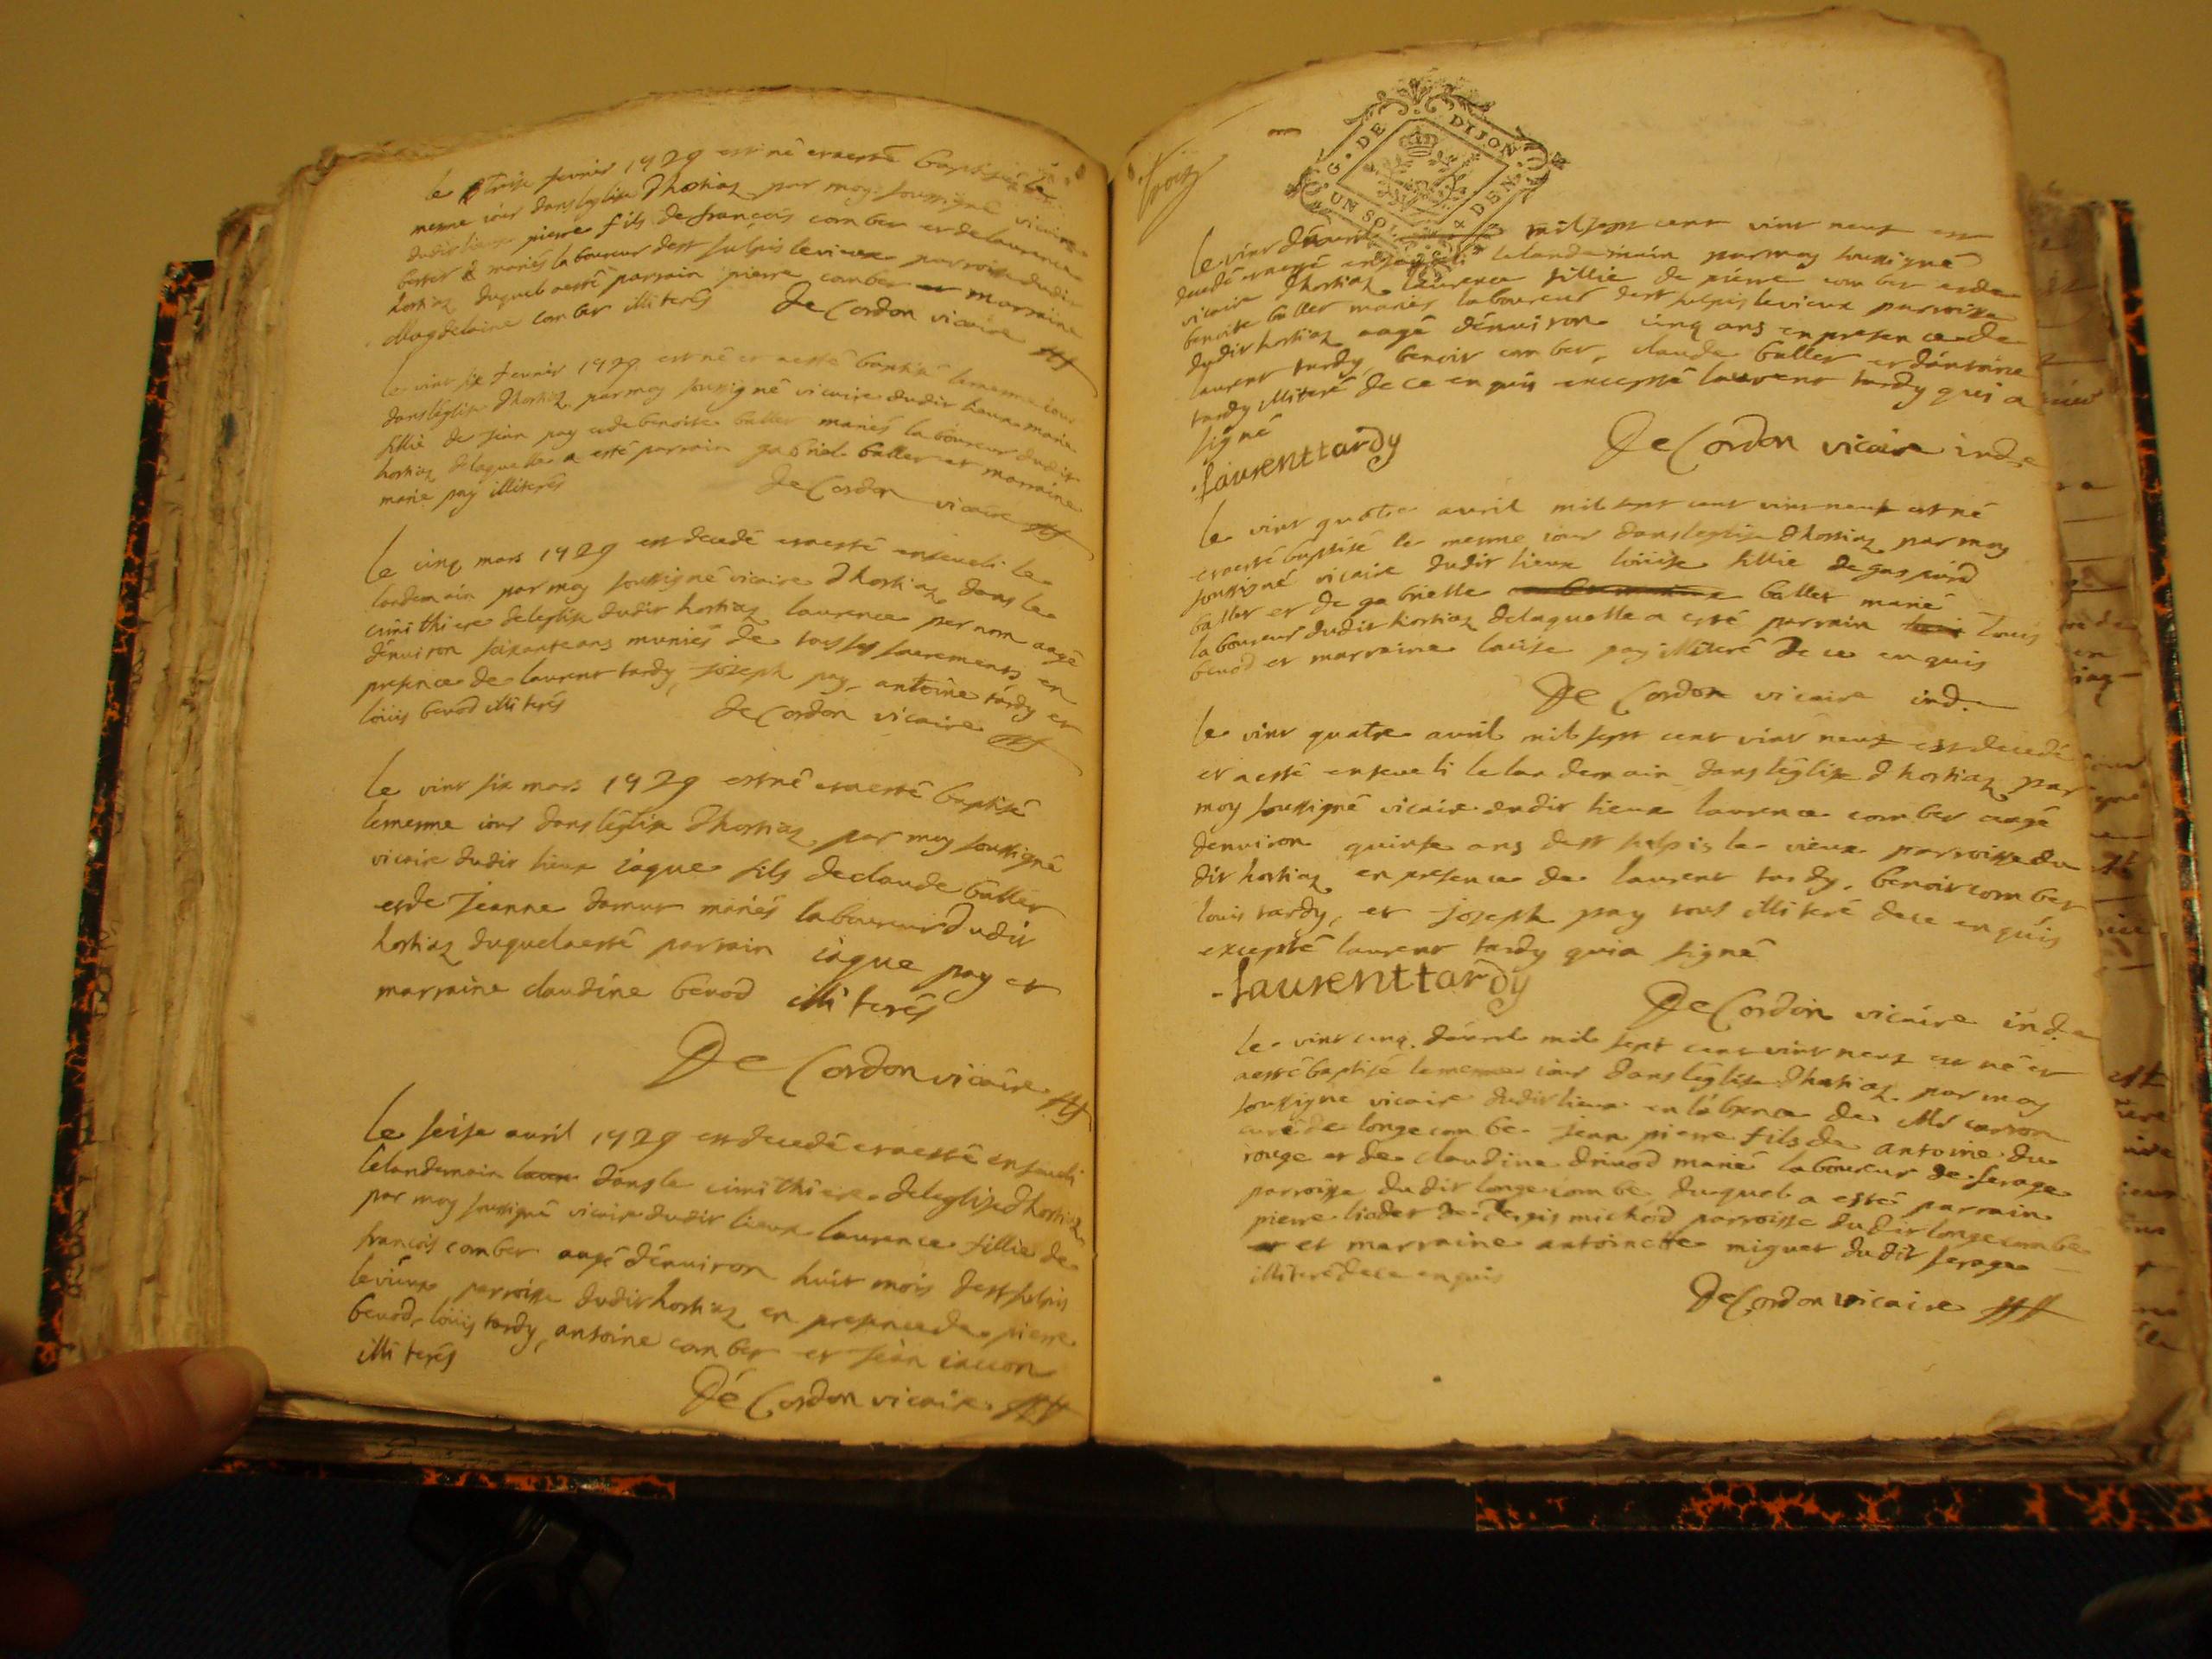 le Treise fevrier 1729 est né et a esté baptisé le
mesme iour dans leglise d'hostiaz par moy soussigné vicaire
dudit lieux pierre fils de françois comber et de laurence
mariés laboureur de st sulpis le vieux parroisse dudit
hostiaz duquel a esté parrain pierre comber et marraine
Magdelaine comber illiterés De Cordon vicaire
le vint six fevrier 1729 est né et a esté baptisé le mesme iour
dans léglise d'hostiaz par moy soussigné vicaire dudit lieux marie
fillie de jean pay et de benoite ballet mariés laboureur dudit
hostiaz de laquelle a esté parrain gabriel ballet et marraine
marie pay illiterés
De Cordon vicaire
le cinq mars 1729 est decedé et a esté enseveli le
landemain par moy soussigné vicaire d'hostiaz dans le
cimithiere de leglise dudit hostiaz laurence per nom aagé
dénuiron soixante ans muniés de tous ses sacrements en
presence de laurent tardy, joseph pay, antoine tardy et
louis bevod illiterés
De Cordon vicaire
le vint six mars 1729 est né et a esté baptisé
le mesme iour dans léglise d'hostiaz par moy soussigné
vicaire dudit lieux iaque fils de claude ballet
et de Jeanne damur mariés laboureur dudit
hostiaz duquel a esté parrain iaque pay et
marraine claudine bevod illiterés
De Cordon vicaire
le seise avril 1729 est decedé et a esté enseveli
le landemain dans le cimithiere de leglise d'hostiaz
par moy soussigné vicaire dudit lieux laurence fillie de
françois comber aagé dénuiron huit mois de st sulpis
le vieux parroisse dudit hostiaz en presence de pierre
bevod, louis tardy, antoine comber et jean
illiterés
De Cordon vicaire
G. DE DIJON
UN SOL 4 DEN.
le vint d'avril mil sept cent vint neuf est
decedé et a esté enseveli le landemain par moy soussigné
vicaire d'hostiaz laurence fillie de pierre comber et de
benoite ballet mariés laboureur de st sulpis le vieux parroisse
dudit hostiaz aagé dénuiron cinq ans en presence de
laurent tardy, benoit comber, claude ballet et d'antoine
tardy illiteré de ce enquis excepté laurent tardy qui a
signé
laurent tardy
De Cordon vicaire ind.
le vint quatre avril mil sept cent vint neuf est né
et a esté baptisé le mesme iour dans leglise d'hostiaz par moy
soussigné vicaire dudit lieux louise fillie de gaspard
ballet et de gabrielle ballet marié
laboureur dudit hostiaz de laquelle a esté parrain louis
bevod et marraine louise pay illiteré de ce enquis
De Cordon vicaire ind.
le vint quatre avril mil sept cent vint neuf est decedé
et a esté enseveli le landemain dans léglise d'hostiaz par
moy soussigné vicaire dudit lieux laurence comber aagé
denuiron quinse ans de st sulpis le vieux parroisse du
dit hostiaz en presence de laurent tardy, benoit comber
louis tardy, et joseph pay tous illiteré de ce enquis
excepté laurent tardy qui a signé
laurent tardy
De Cordon vicaire ind.
le vint cinq d'avril mil sept cent vint neuf est né et
a esté baptisé le mesme iour dans léglise d'hostiaz par moy
soussigné vicaire dudit lieux en l'absence de Mr
curé de longecombe jean pierre fils de antoine du
rouge et de claudine drivod marié laboureur de serage
parroisse dudit longecombe duquel a esté parrain
pierre liodet de michod parroisse dudit longecombe
et marraine antoinette miguet dudit serage
illiteré de ce enquis
De Cordon vicaire